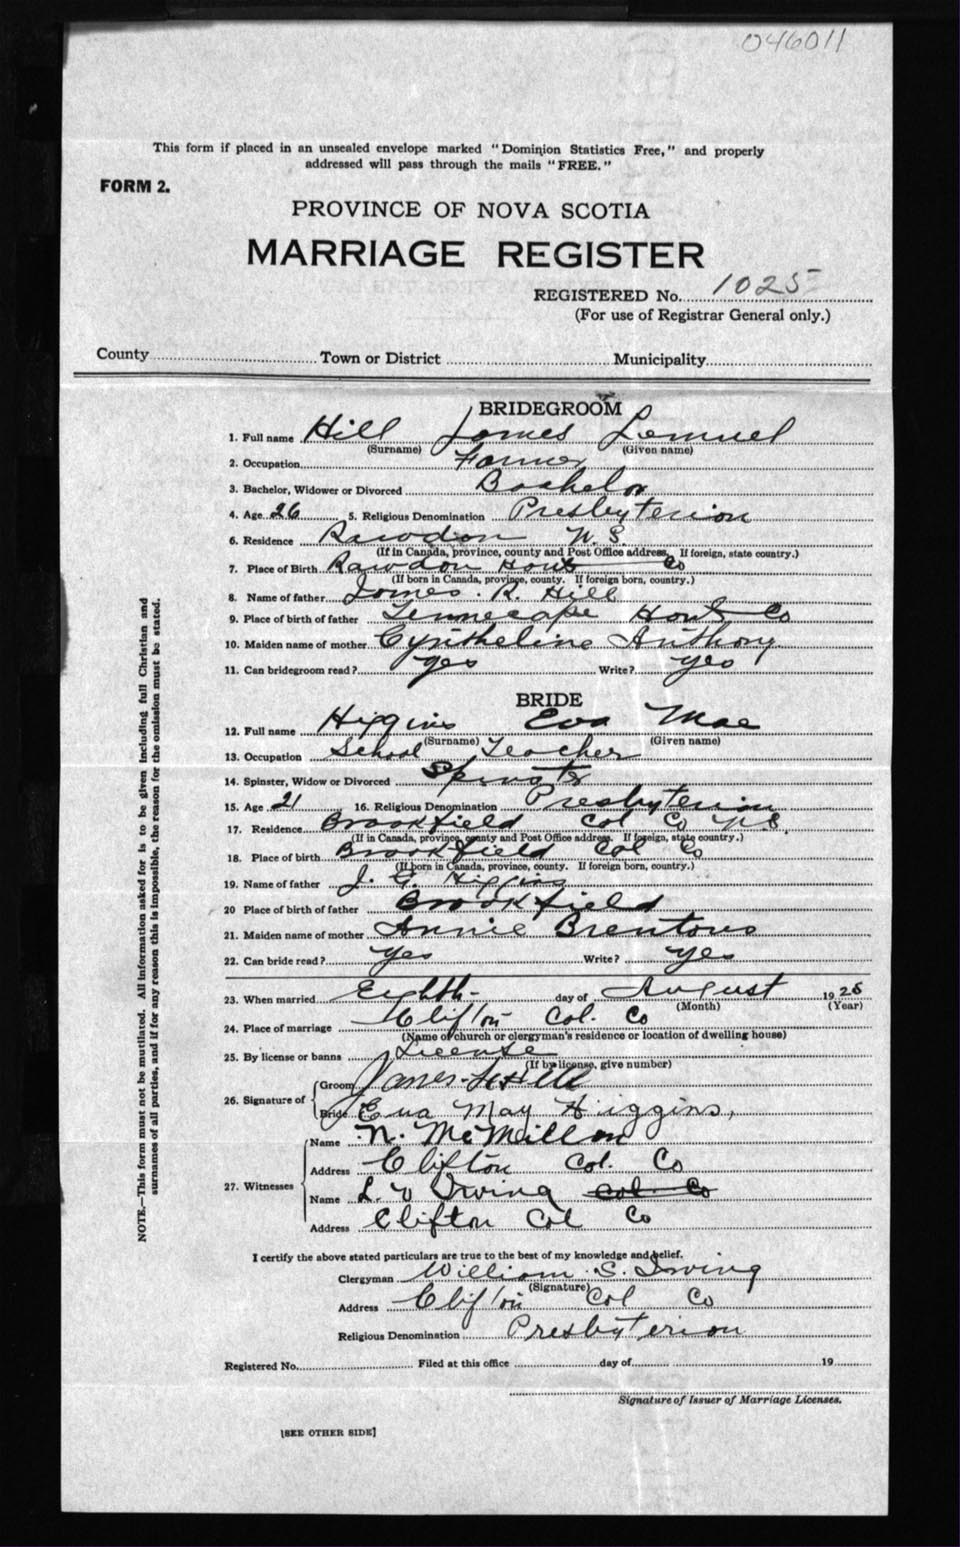 046011
This form if placed in an unsealed envelope marked "Dominion Statistics Free," and properly
addressed will pass through the mails "FREE."
FORM 2.
PROVINCE OF NOVA SCOTIA
MARRIAGE REGISTER
REGISTERED No. 1025
(For use of Registrar General only.)
County Town or District Municipality
BRIDEGROOM
1. Full name Hill James Lemuel
(Surname) (Given name)
2. Occupation Farmer
3. Bachelor, Widower or Divorced Bachelor
4. Age 26 5. Religious Denomination Presbyterian
6. Residence Rawdon N.S.
(If in Canada, province, county and Post Office address. If foreign, state country.)
7. Place of Birth Rawdon Hants Co
(If born in Canada, province, county. If foreign born, country.)
8. Name of father James R. Hill
9. Place of birth of father Tennecape Hants Co
10. Maiden name of mother Cyntheline Anthony
11. Can bridegroom read? yes Write? yes
BRIDE
12. Full name Higgins Eva Mae
(Surname) (Given name)
13. Occupation School Teacher
14. Spinster, Widow or Divorced Spinster
15. Age 21 16. Religious Denomination Presbyterian
17. Residence Brookfield Col Co N.S.
(If in Canada, province, county and Post Office address. If foreign, state country.)
18. Place of birth Brookfield Col Co
(If born in Canada, province, county. If foreign born, country.)
19. Name of father J. Higgins
20 Place of birth of father Brookfield
21. Maiden name of mother Annie Brentons
22. Can bride read? yes Write? yes
23. When married Eighth day of August 19
(Month) (Year)
24. Place of marriage Clifton Col. Co
(Name of church or clergyman's residence or location of dwelling house)
25. By license or banns License
(If by license, give number)
26. Signature of Groom James L Hill
Bride Eva May Higgins,
27. Witnesses Name N. McMillan
Address Clifton Col. Co
Name L. Irving Col. Co
Address Clifton Col Co
I certify the above stated particulars are true to the best of my knowledge and belief.
Clergyman William S. Irving
(Signature)
Address Clifton Col Co
Religious Denomination Presbyterian
Registered No. Filed at this office day of 19
Signature of Issuer of Marriage Licenses.
[SEE OTHER SIDE]
NOTE.—This form must not be mutilated. All information asked for is to be given including full Christian and
surnames of all parties, and if for any reason this is impossible, the reason for the omission must be stated.